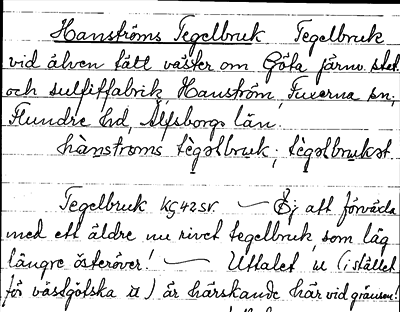 Hanströms Tegelbruk Tegelbruk
vid älven tätt väster om Göta järnv.stat.
och sulfitfabrik, Hanström, Fuxerna sn;
Flundre hd, Älfsborgs län.
hànstroms tègəlbruk; tègəlbrukət
Tegelbruk KG42SV. — Ej att förväxla
med ett äldre nu rivet tegelbruk, som låg
längre österöver! — Uttalet u (i stället
för västgötska ) är härskande här vid gränsen!